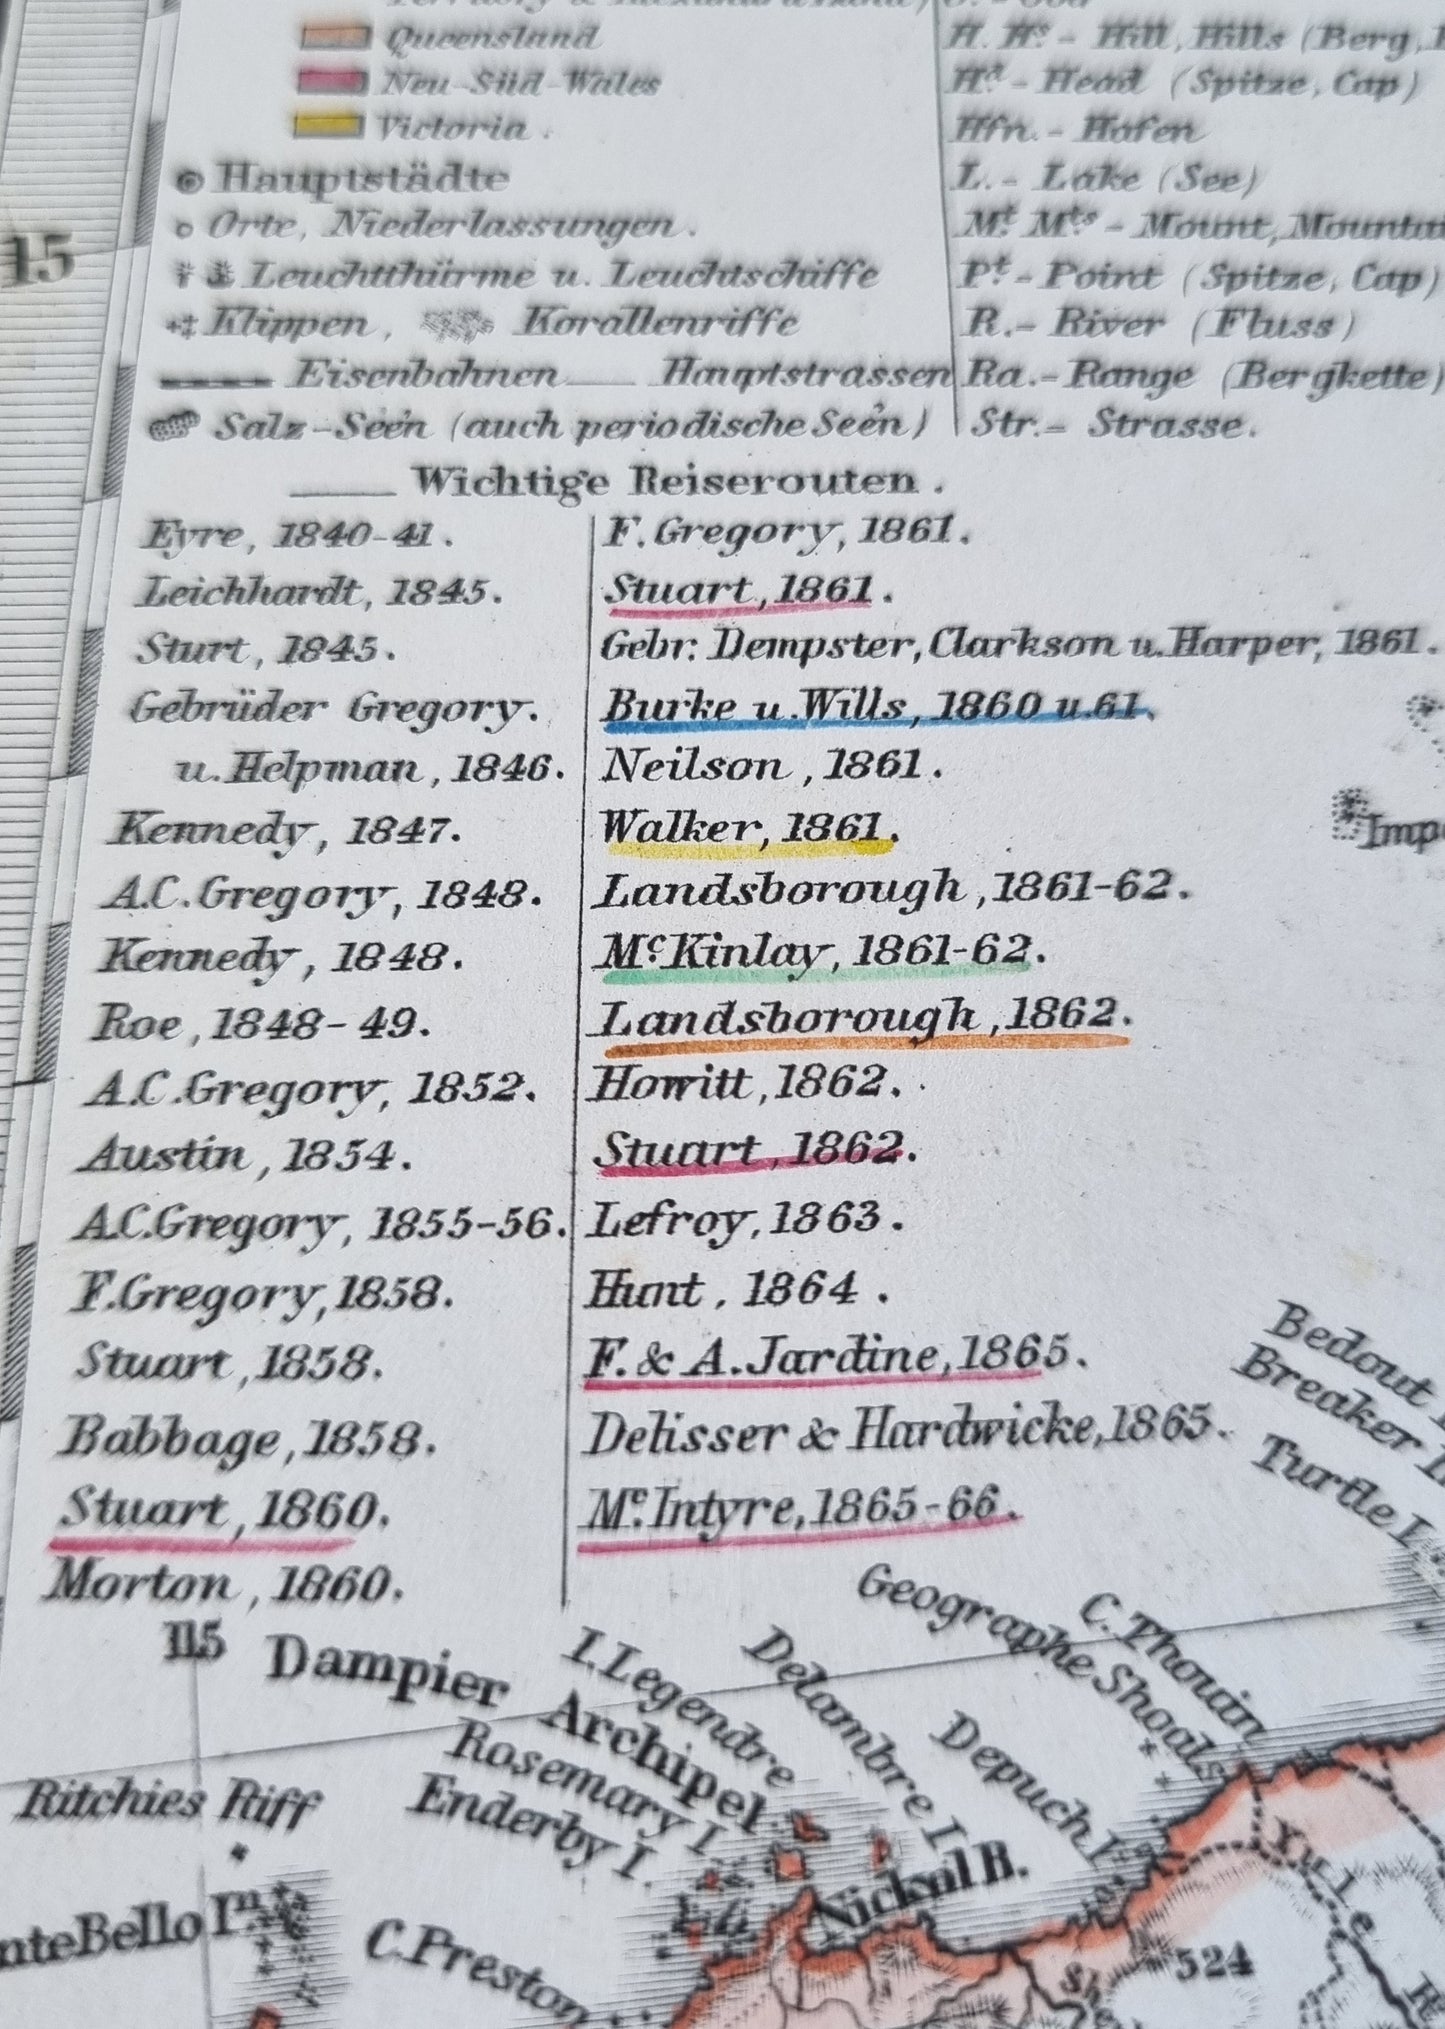 Queensland
Neu-Süd-Wales
Victoria.
Hauptstädte
Orte, Niederlassungen.
Leuchtthürme u. Leuchtschiffe
Klippen, Korallenriffe
Eisenbahnen Hauptstrassen
Salz-Seen (auch periodische Seen)
H. Hs - Hill, Hills (Berg,
Hd - Head (Spitze, Cap)
Hfn. - Hafen
L. - Lake (See)
Mt Mts - Mount,
Pt - Point (Spitze, Cap)
R. - River (Fluss)
Ra. - Range (Bergkette)
Str. - Strasse.
15
Wichtige Reiserouten.
Eyre, 1840-41.
Leichhardt, 1845.
Sturt, 1845.
Gebrüder Gregory.
u. Helpman, 1846.
Kennedy, 1847.
A.C. Gregory, 1848.
Kennedy, 1848.
Roe, 1848-49.
A.C. Gregory, 1852.
Austin, 1854.
A.C. Gregory, 1855-56.
F. Gregory, 1858.
Stuart, 1858.
Babbage, 1858.
Stuart, 1860.
Morton, 1860.
F. Gregory, 1861.
Stuart, 1861.
Gebr. Dempster, Clarkson u. Harper, 1861.
Burke u. Wills, 1860 u. 61.
Neilson, 1861.
Walker, 1861.
Landsborough, 1861-62.
Mc. Kinlay, 1861-62.
Landsborough, 1862.
Howitt, 1862.
Stuart, 1862.
Lefroy, 1863.
Hunt, 1864.
F. & A. Jardine, 1865.
Delisser & Hardwicke, 1865.
Mc. Intyre, 1865-66.
Bedout
Breaker
Turtle I.
115
Dampier Archipel
I. Legendre
Rosemary I.
Enderby I.
Delambre I.
Depuch I.
Geographe Shoals
C. Thouin
Ritchies Riff
C. Preston
Nickol B.
524
Yule